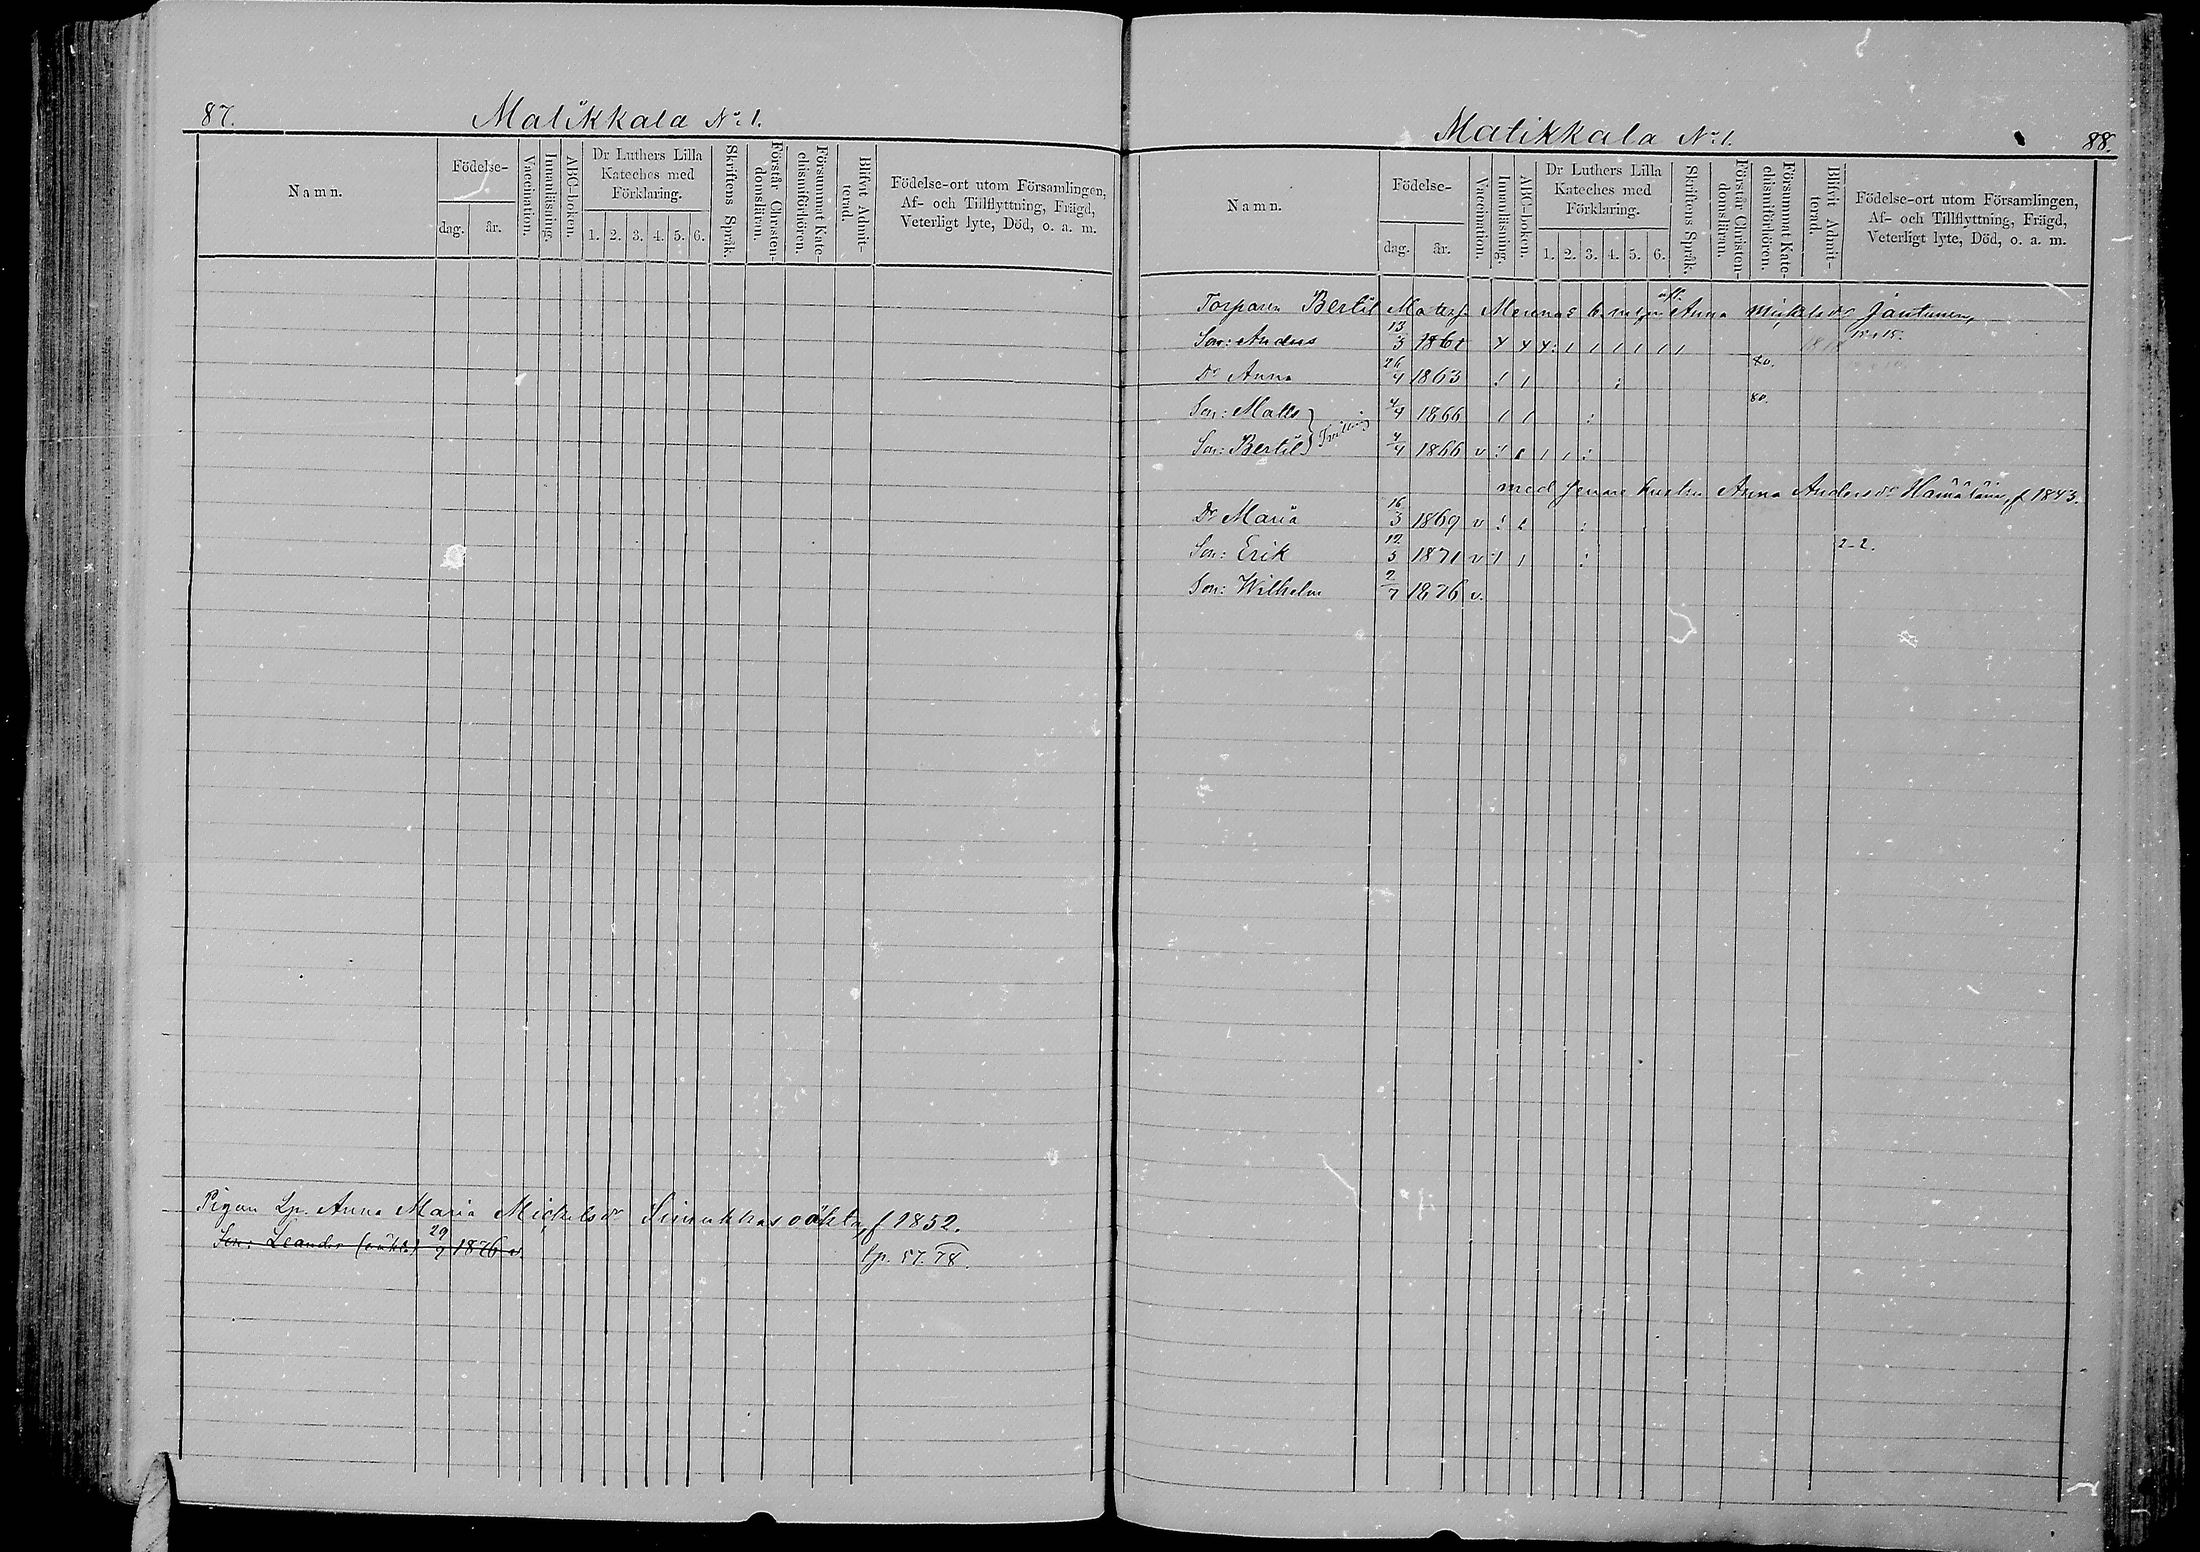 87. Malikkala No 1.
Namn.
Födelse-
dag. år.
Vaccination.
Innanläsning.
ABC-boken.
Dr Luthers Lilla
Kateches med
Förklaring.
1. 2. 3. 4. 5. 6.
Skriftens Språk.
Förstår Christen-
domsläran.
Försummat Kate-
chismiförhören.
Blifvit Admit-
terad.
Födelse-ort utom Församlingen,
Af- och Tillflyttning, Frägd,
Veterligt lyte, Död, o. a. m.
Pigan Lp. Anna Maria Mickelsdr f 1852.
Son: Leander (oäkta) 29/9 1876 v.
fp. 57. 78.
Malikkala No 1. 88.
Namn.
Födelse-
dag. år.
Vaccination.
Innanläsning.
ABC-boken.
Dr Luthers Lilla
Kateches med
Förklaring.
1. 2. 3. 4. 5. 6.
Skriftens Språk.
Förstår Christen-
domsläran.
Försummat Kate-
chismiförhören.
Blifvit Admit-
terad.
Födelse-ort utom Församlingen,
Af- och Tillflyttning, Frägd,
Veterligt lyte, Död, o. a. m.
Torparen Bertil Matts. Mennas b. m. afl. Anna Mickelsdr Jantunen,
Son: Anders 13/3 1861
Dr Anna 26/4 1863 80.
Son: Matts 4/4 1866 80.
Son: Bertil Tvilling 4/4 1866 v
med senare hustrun Anna Andersdr Hämäläin, f 1843.
Dr Maria 16/3 1869 v
Son: Erik 12/5 1871 v 2-2.
Son: Wilhelm 2/7 1876 v.